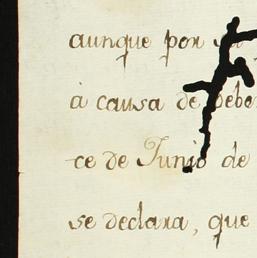 aunque por su
à causa de debe
ce de Junio de
se declara, que